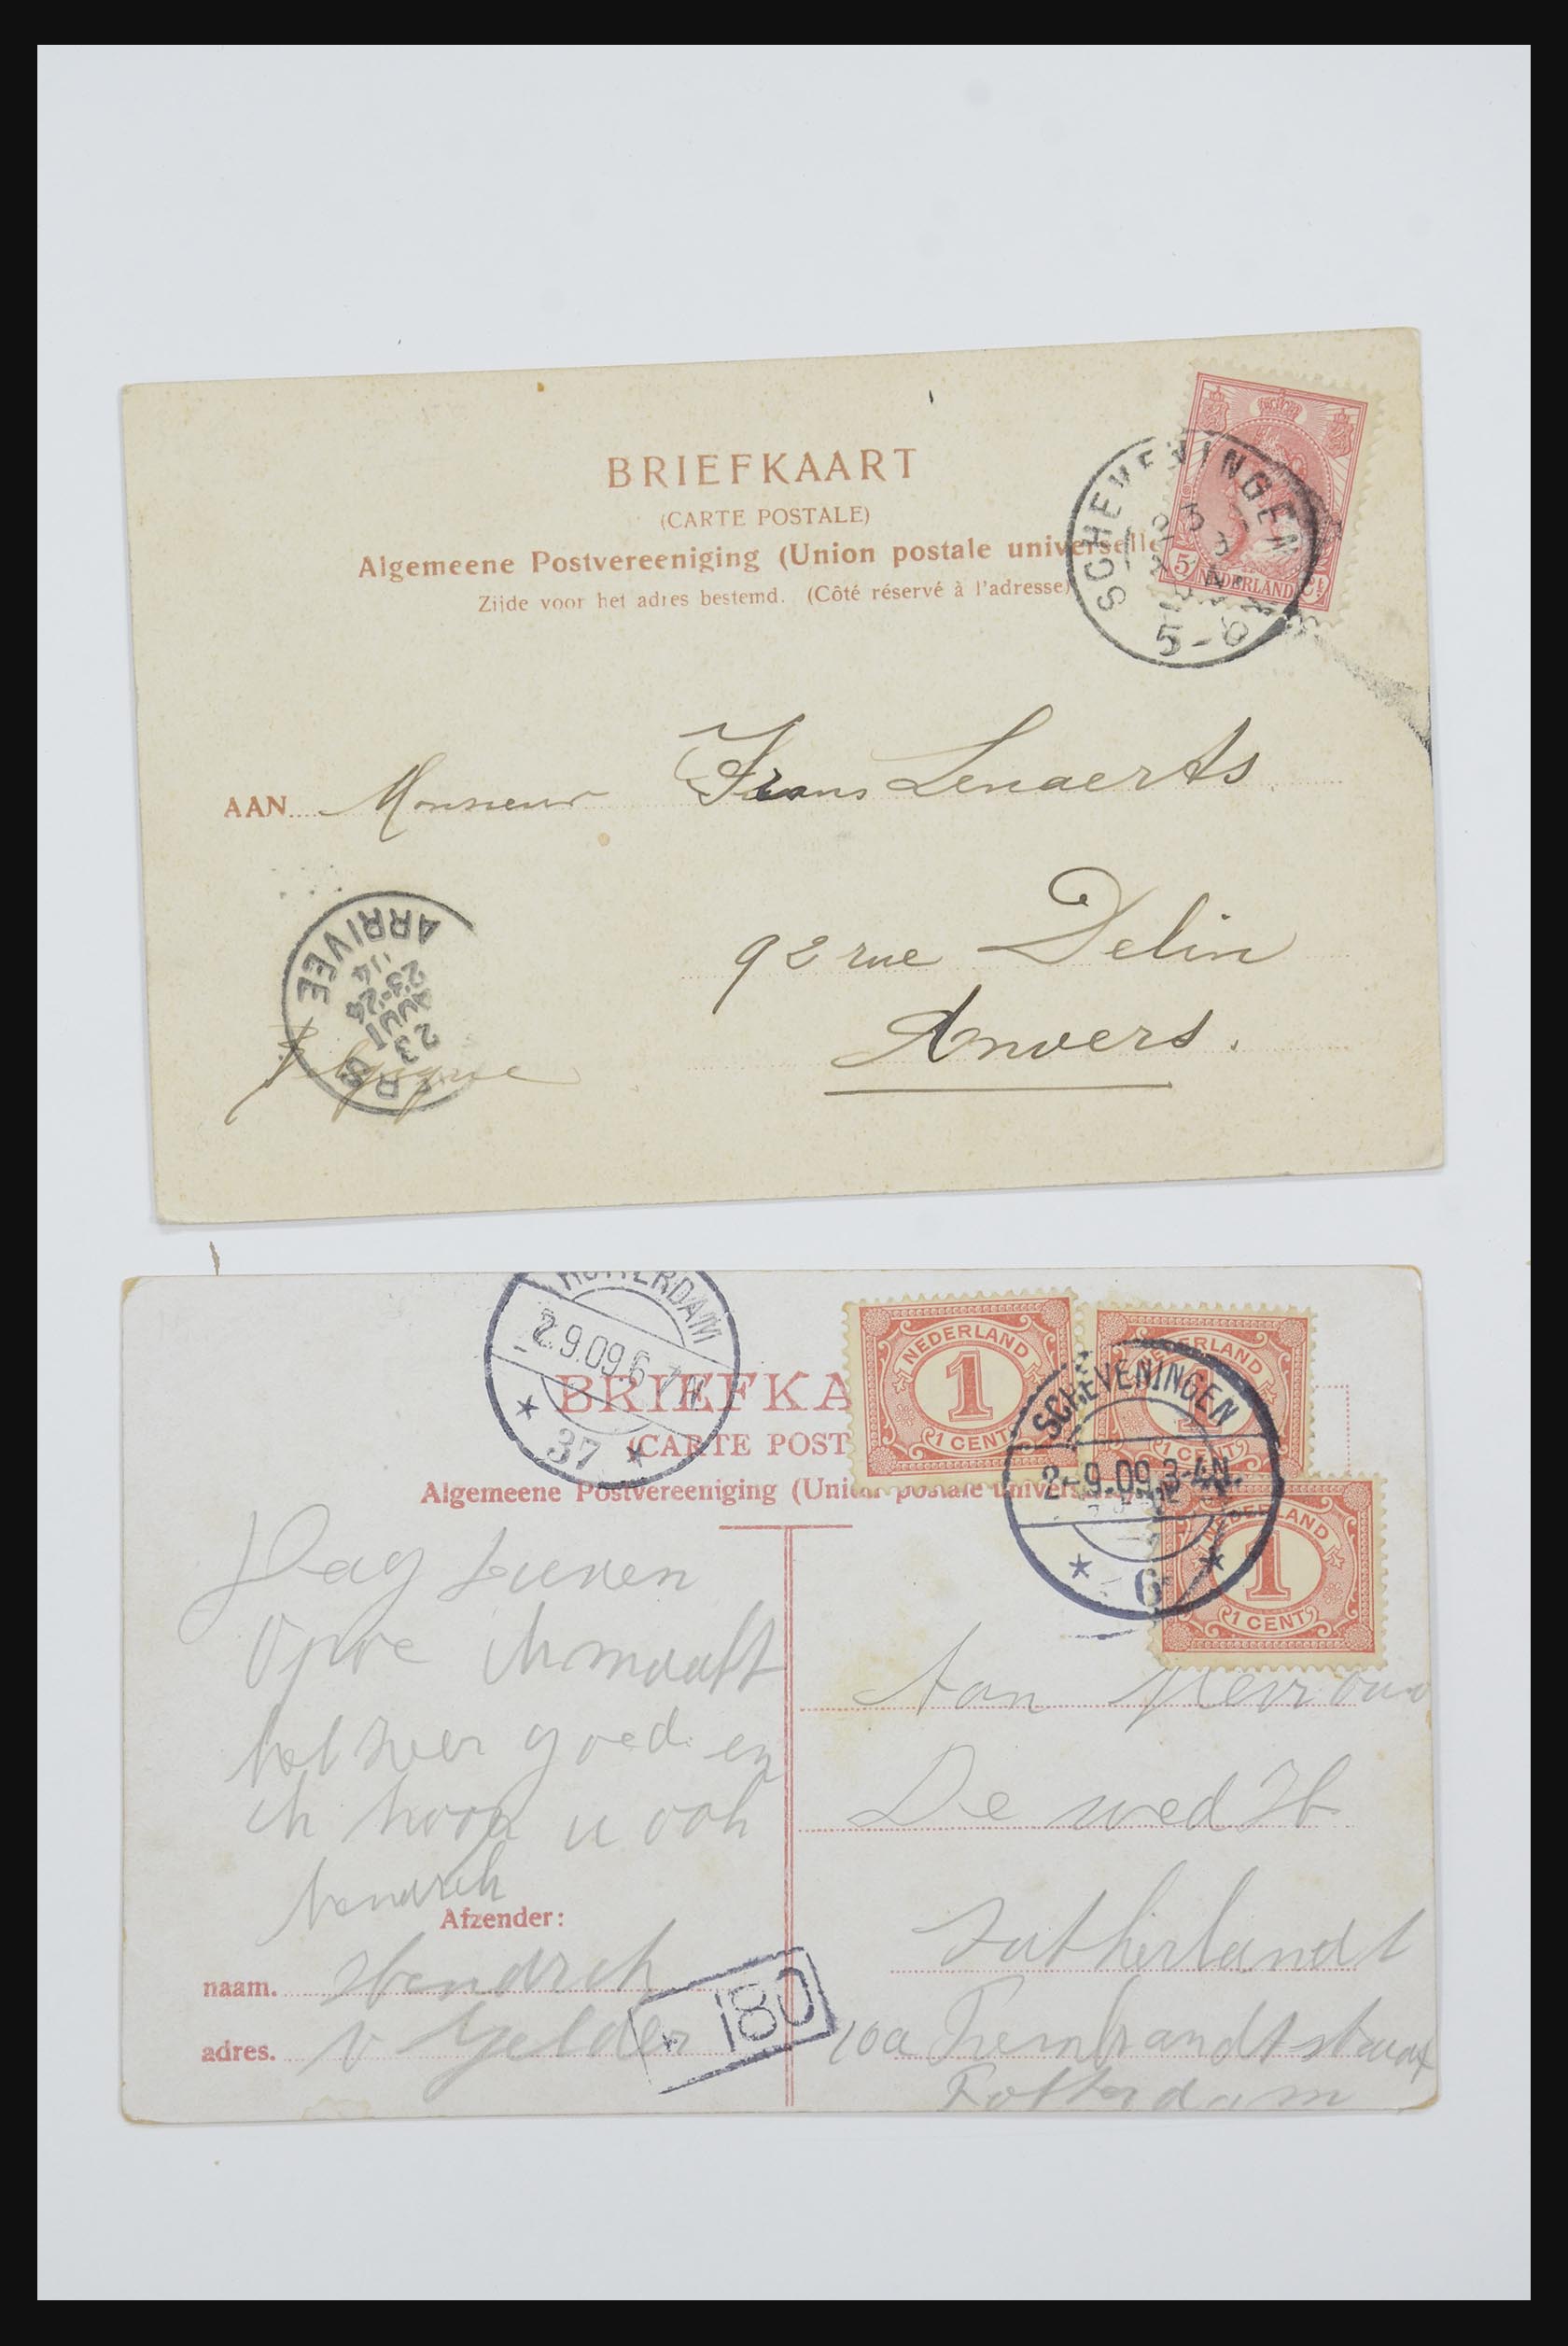 BRIEFKAART
(CARTE POSTALE)
Algemeene Postvereeniging (Union postale universelle
Zijde voor het adres bestemd. (Côté réservé à l'adresse)
SCHEVENINGEN
5-6
5 NEDERLAND Ct
AAN Monsieur Frans Lenaerts
92 rue Delin
Anvers.
Belgique
ARRIVEE
23
AOUT
23-24
04
ROTTERDAM
2.9.09 6-7N
* 37 *
NEDERLAND
1
1 CENT
NEDERLAND
1
1 CENT
NEDERLAND
1
1 CENT
SCHEVENINGEN
2-9.09.3-4N.
* 6 *
BRIEFKA
(CARTE POST
Algemeene Postvereeniging (Union postale univers
Dag
ik maakt
het zeer goed en
ik hoop u ook
hendrik
Afzender:
naam. Hendrik
adres. v Gelder
180
Aan Mevrouw
De wed H
Sutherlandt
10a Rembrandtstraat
Rotterdam